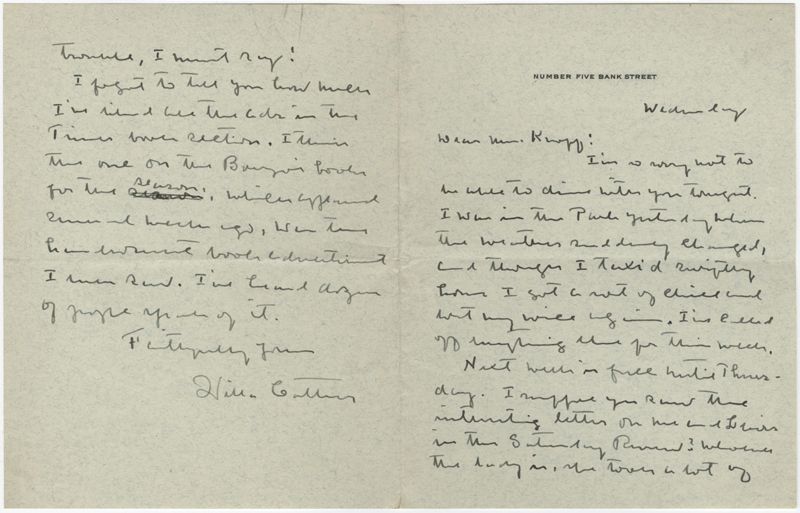 NUMBER FIVE BANK STREET
Wednesday
Dear Mr. Knopf:
I'm so sorry not to
be able to dine with you tonight.
I was in the Park yesterday when
the weather suddenly changed,
and though I taxi'd swiftly
home I got a sort of chill and
lost my voice again. I've called
off anything else for this week.
Next week is full until Thurs-
day. I suppose you saw the
interesting letter on me and Lewis
in the Saturday Review? Whoever
the lady is, she took a lot of
trouble, I must say!
I forgot to tell you how much
I've liked all the ads in the
Times book section. I think
the one on the Borzoi books
for the season, which appeared
several weeks ago, was the
handsomest book advertisement
I ever saw. I've heard dozens
of people speak of it.
Faithfully yours
Willa Cather